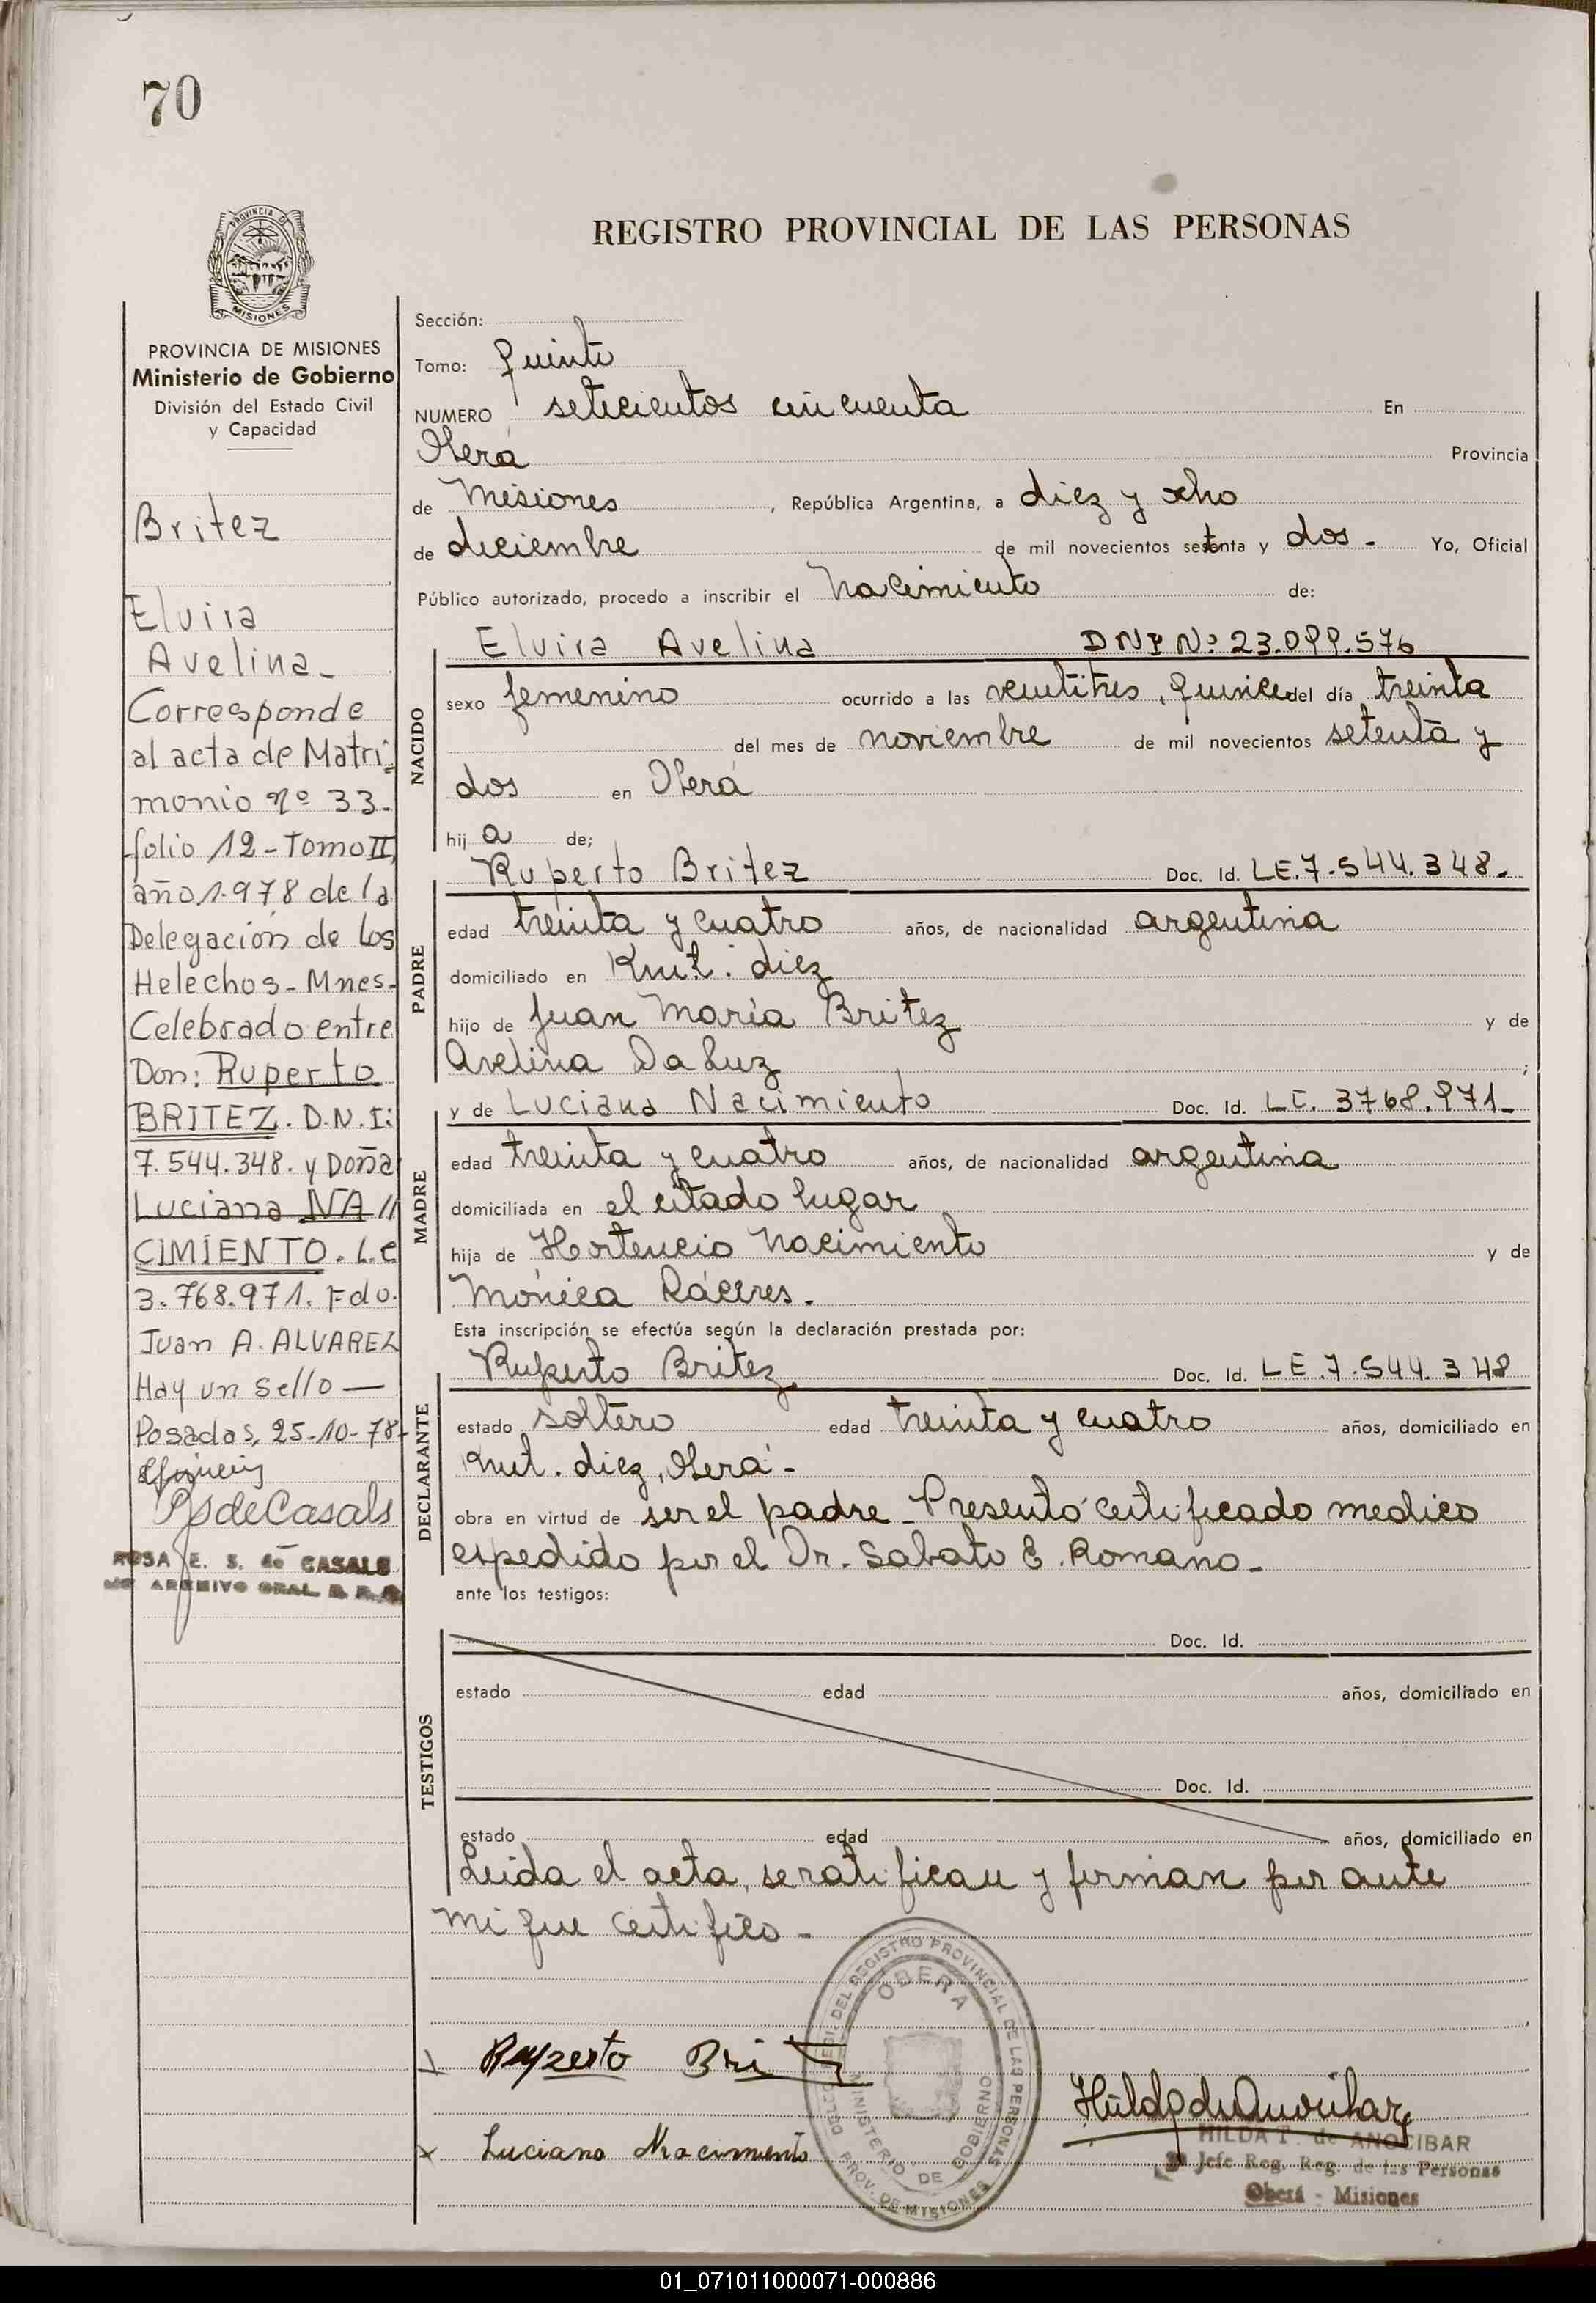 70
REGISTRO PROVINCIAL DE LAS PERSONAS
MISIONES
PROVINCIA DE MISIONES
Ministerio de Gobierno
División del Estado Civil
y Capacidad
Britez
Elvira
Avelina-
Corresponde
al acta de Matri-
monio nº 33-
folio 12-Tomo II,
año 1.978 de la
Delegación de los
Helechos-Mnes-
Celebrado entre
Don: Ruperto
BRITEZ. D.N.I:
7.544.348. y Doña
Luciana NA//
CIMIENTO. L.C
3.768.971. Fdo.
Juan A. ALVAREZ
Hay un sello —
Posadas, 25-10-78-
RSdeCasals
ROSA E. S. de CASALS
ARCHIVO GRAL.
Sección:
Tomo: quinto
NUMERO setecientos cincuenta En
Oberá Provincia
de Misiones, República Argentina, a diez y ocho
de diciembre de mil novecientos setenta y dos - Yo, Oficial
Público autorizado, procedo a inscribir el Nacimiento de:
NACIDO
Elvira Avelina DNI Nº 23.099.576
sexo femenino ocurrido a las veintitres, quince del día treinta
del mes de noviembre de mil novecientos setenta y
dos en Oberá
hij a de;
PADRE
Ruperto Britez Doc. Id. LE.7.544.348-
edad treinta y cuatro años, de nacionalidad argentina
domiciliado en Kmt. diez
hijo de Juan María Britez y de
Avelina Da Luz ;
MADRE
y de Luciana Nacimiento Doc. Id. LC. 3768.971-
edad treinta y cuatro años, de nacionalidad argentina
domiciliada en el citado lugar
hija de Hortencio Nacimiento y de
Mónica Cáceres.
Esta inscripción se efectúa según la declaración prestada por:
DECLARANTE
Ruperto Britez Doc. Id. LE.7.544.348
estado soltero edad treinta y cuatro años, domiciliado en
Kmt. diez, Oberá-
obra en virtud de ser el padre - Presentó certificado medico
espedido por el Dr. Sabato E. Romano-
ante los testigos:
TESTIGOS
Doc. Id.
estado edad años, domiciliado en
Doc. Id.
estado edad años, domiciliado en
Leida el acta, se ratifican y firman por ante
mi que certifico-
Ruperto Britez
x Luciana Nacimiento
DEL REGISTRO PROVINCIAL DE LAS PERSONAS
OBERA
MINISTERIO DE GOBIERNO
PROV. DE MISIONES
HILDA T. de ANOCIBAR
Jefe Reg. Reg. de las Personas
Oberá - Misiones
01_071011000071-000886